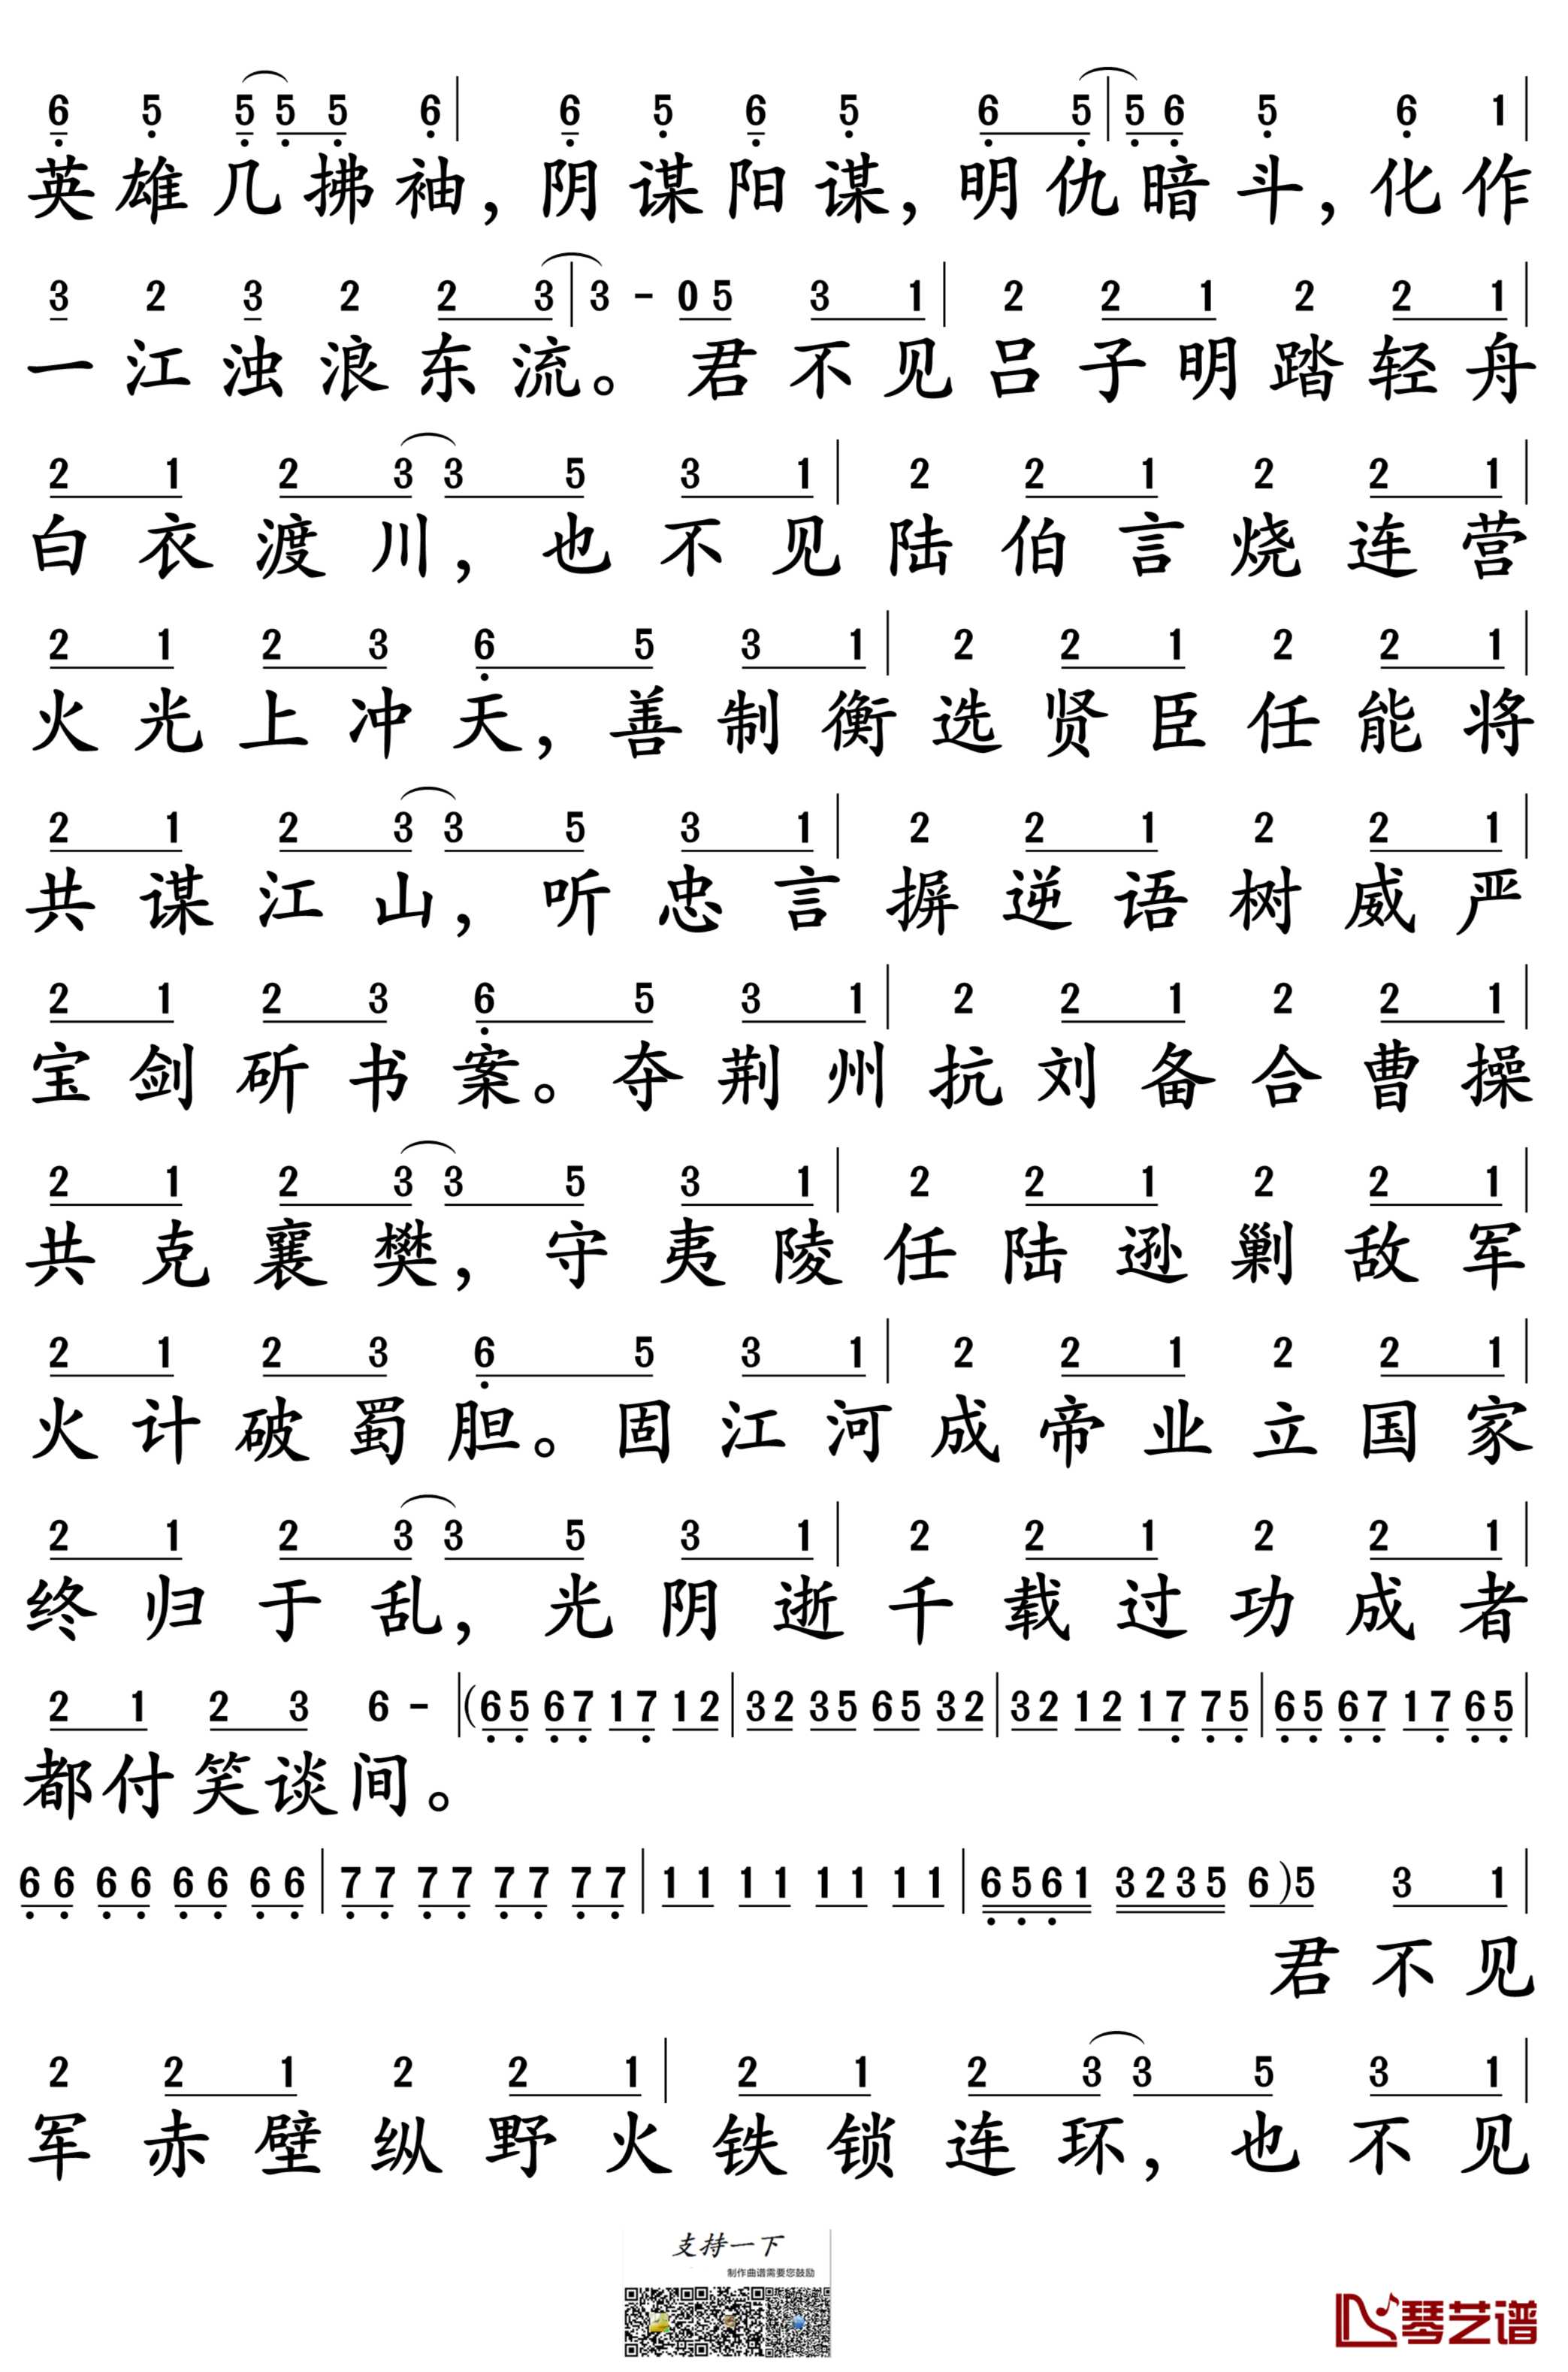 6 5 5 5 5 6 | 6 5 6 5 6 5 | 5 6 5 6 1 |
英雄几拂袖，阴谋阳谋，明仇暗斗，化作
3 2 3 2 2 3 | 3 - 0 5 3 1 | 2 2 1 2 2 1 |
一江浊浪东流。君不见吕子明踏轻舟
2 1 2 3 3 5 3 1 | 2 2 1 2 2 1 |
白衣渡川，也不见陆伯言烧连营
2 1 2 3 6 5 3 1 | 2 2 1 2 2 1 |
火光上冲天，善制衡选贤臣任能将
2 1 2 3 3 5 3 1 | 2 2 1 2 2 1 |
共谋江山，听忠言摒逆语树威严
2 1 2 3 6 5 3 1 | 2 2 1 2 2 1 |
宝剑斫书案。夺荆州抗刘备合曹操
2 1 2 3 3 5 3 1 | 2 2 1 2 2 1 |
共克襄樊，守夷陵任陆逊剿敌军
2 1 2 3 6 5 3 1 | 2 2 1 2 2 1 |
火计破蜀胆。固江河成帝业立国家
2 1 2 3 3 5 3 1 | 2 2 1 2 2 1 |
终归于乱，光阴逝千载过功成者
2 1 2 3 6 - | (65 67 17 12 | 32 35 65 32 | 32 12 17 75 | 65 67 17 65 |
都付笑谈间。
66 66 66 66 | 77 77 77 77 | 11 11 11 11 | 6561 3235 6)5 3 1 |
君不见
2 2 1 2 2 1 | 2 1 2 3 3 5 3 1 |
军赤壁纵野火铁锁连环，也不见
支持一下
制作曲谱需要您鼓励
琴艺谱